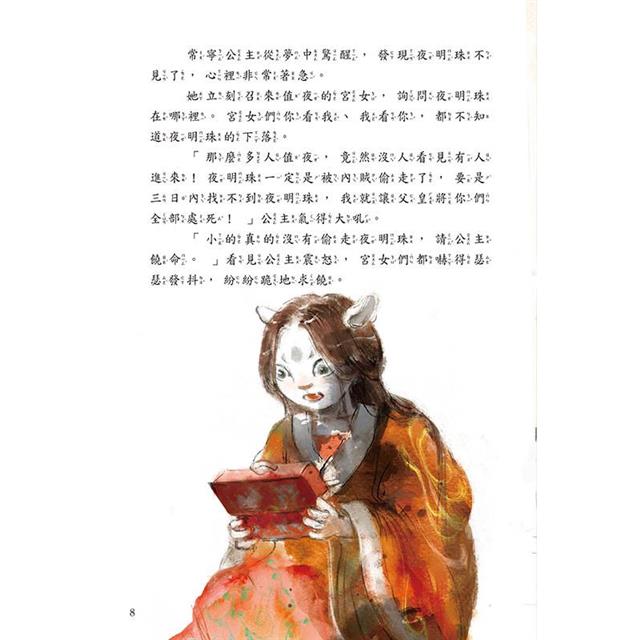 常寧公主從夢中驚醒，發現夜明珠不
見了，心裡非常著急。
她立刻召來值夜的宮女，詢問夜明珠
在哪裡。宮女們你看我、我看你，都不知
道夜明珠的下落。
「那麼多人值夜，竟然沒人看見有人
進來！夜明珠一定是被內賊偷走了，要是
三日內找不到夜明珠，我就讓父皇將你們
全部處死！」公主氣得大吼。
「小的真的沒有偷走夜明珠，請公主
饒命。」看見公主震怒，宮女們都嚇得瑟
瑟發抖，紛紛跪地求饒。
8